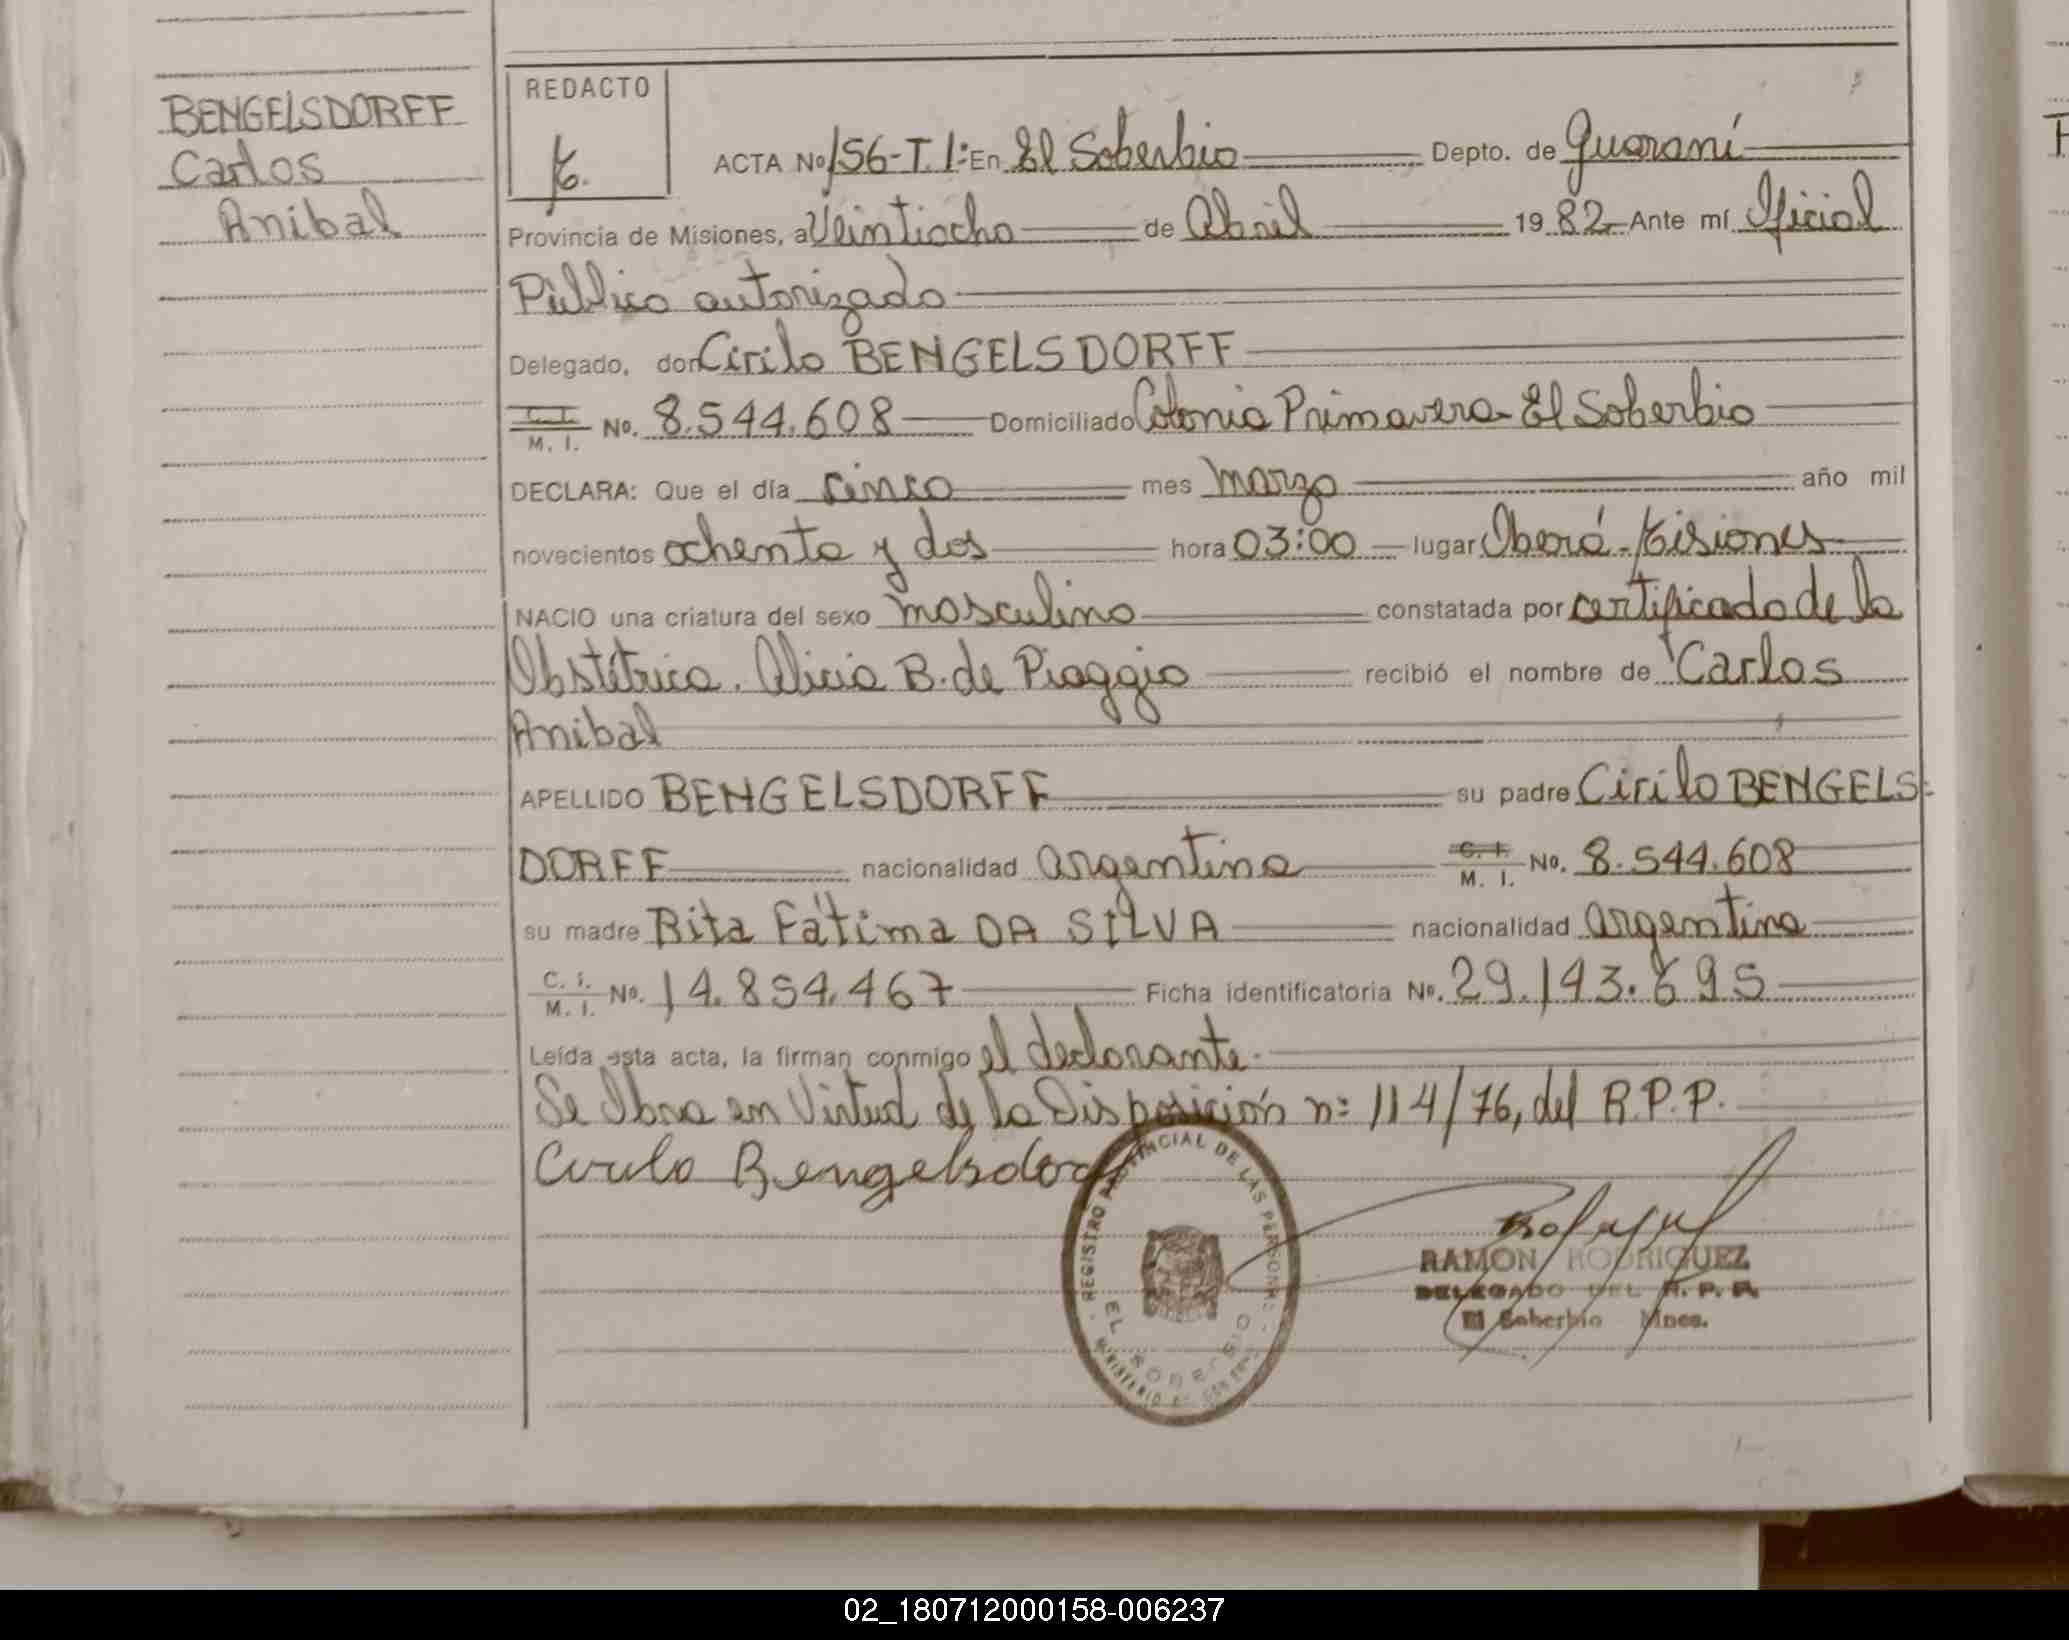 BENGELSDORFF
Carlos
Anibal
REDACTO
ACTA No 156-T.1: En El Soberbio Depto. de Guaraní
Provincia de Misiones, a Veintiocho de Abril 19 82 Ante mí Oficial
Público autorizado
Delegado, don Cirilo BENGELSDORFF
C. I. M. I. No. 8.544.608 Domiciliado Colonia Primavera-El Soberbio
DECLARA: Que el día cinco mes marzo año mil
novecientos ochenta y dos hora 03:00 lugar Oberá-Misiones
NACIO una criatura del sexo masculino constatada por certificado de la
Obstétrica. Alicia B. de Piaggio recibió el nombre de Carlos
Anibal
APELLIDO BENGELSDORFF su padre Cirilo BENGELS-
DORFF nacionalidad argentina C. I. M. I. No. 8.544.608
su madre Rita Fátima DA SILVA nacionalidad argentina
C. I. M. I. No. 14.854.467 Ficha identificatoria No. 29.143.695
Leída esta acta, la firman conmigo el declarante.
Se Obra en Virtud de la Disposición n: 114/76, del R.P.P.
Cirilo Bengelsdorf
REGISTRO PROVINCIAL DE LAS PERSONAS
EL SOBERBIO
RAMON RODRIGUEZ
DELEGADO DEL R. P. P.
El Soberbio Mnes.
02_180712000158-006237